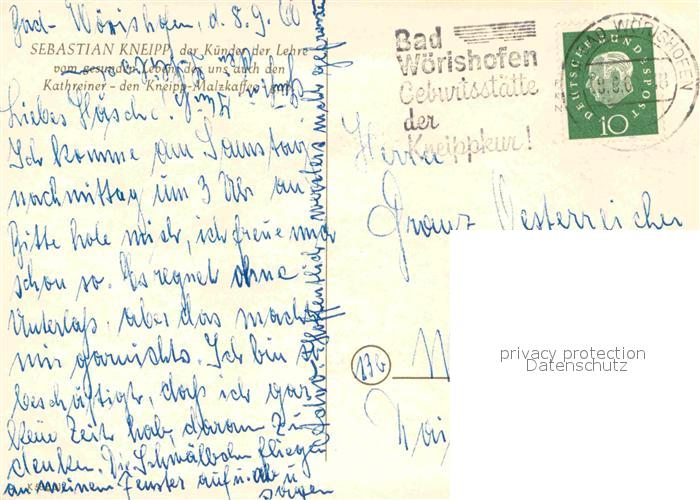 Bad-Wörishofen, d. 8.9.60
SEBASTIAN KNEIPP, der Künder der Lehre
vom gesunden Leben, der uns auch den
Kathreiner - den Kneipp-Malzkaffee - gab
Liebes
Ich komme am Samstag
nachmittag um 3 Uhr an
Bitte hole mich, ich freue mich
schon so. Es regnet ohne
Unterlaß, aber das macht
mir garnichts. Ich bin so
beschäftigt, daß ich gar
keine Zeit hab, daran zu
denken. Die Schwälbchen fliegen
an meinem Fenster auf u. ab u.
sorgen
Hoffentlich
Bad
Wörishofen
Geburtsstätte
der
Kneippkur!
BAD WÖRISHOFEN
DEUTSCHE BUNDESPOST
10
Herrn
Franz Oesterreicher
13b
privacy protection
Datenschutz